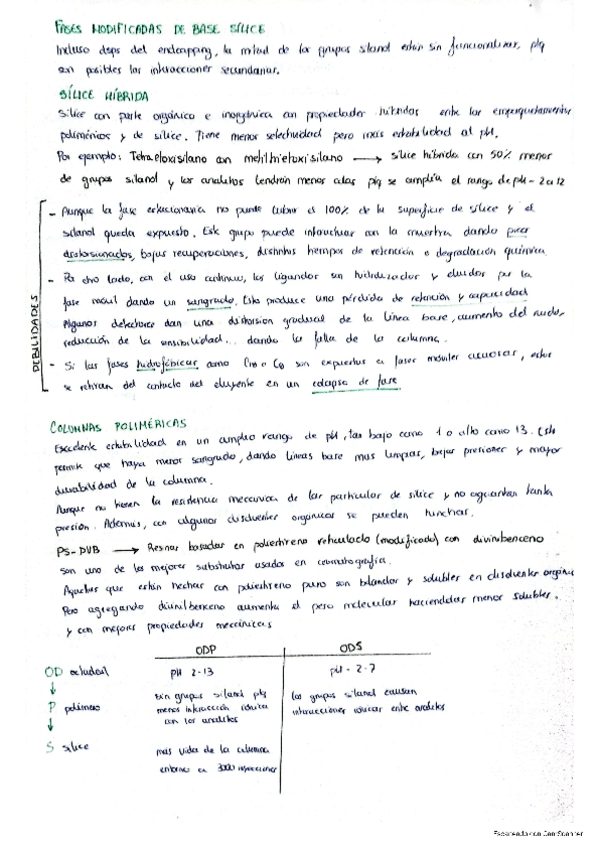 FASES MODIFICADAS DE BASE SÍLICE
Incluso dsps del endcapping, la mitad de los grupos silanol están sin funcionalizar, plq
son posibles las interacciones secundarias.
SÍLICE HÍBRIDA
Sílice con parte orgánica e inorgánica con propiedades híbridas entre los empaquetamientos
poliméricos y de sílice. Tiene menor selectividad pero más estabilidad al pH.
Por ejemplo: Tetraetoxisilano con metiltrietoxisilano → sílice híbrida con 50% menor
de grupos silanol y los analitos tendrán menos colas plq se amplía el rango de pH - 2 a 12
DEBILIDADES
- Aunque la fase estacionaria no puede cubrir el 100% de la superficie de sílice y el
silanol queda expuesto. Este grupo puede interactuar con la muestra dando picos
distorsionados, bajas recuperaciones, distintos tiempos de retención o degradación química.
- Por otro lado, con el uso continuo, los ligandos son hidrolizados y eluidos por la
fase móvil dando un sangrado. Esto produce una pérdida de retención y capacidad
Algunos detectores dan una distorsión gradual de la línea base, aumento del ruido,
reducción de la sensibilidad... dando la falla de la columna.
- Si las fases hidrofóbicas como C18 o C8 son expuestas a fases móviles acuosas, estas
se retiran del contacto del eluyente en un colapso de fase
COLUMNAS POLIMÉRICAS
Excelente estabilidad en un amplio rango de pH, tan bajo como 1 o alto como 13. Esto
permite que haya menor sangrado, dando líneas base más limpias, bajas presiones y mayor
durabilidad de la columna.
Aunque no tienen la resistencia mecánica de las partículas de sílice y no aguantan tanta
presión. Además, con algunos disolventes orgánicos se pueden hinchar.
PS-DVB → Resinas basadas en poliestireno reticulado (modificado) con divinilbenceno
son uno de los mejores substratos usados en cromatografía.
Aquellas que están hechas con poliestireno puro son blandas y solubles en disolventes orgánicos
Pero agregando divinilbenceno aumenta el peso molecular haciéndolas menos solubles.
y con mejores propiedades mecánicas
ODP ODS
OD octadecil pH 2-13 pH - 2-7
↓ sin grupos silanol plq los grupos silanol causan
P polímero menos interacción con los analitos interacciones entre analitos
↓
S sílice más vida de la columna
entorno a 3000 inyecciones
Escaneado con CamScanner